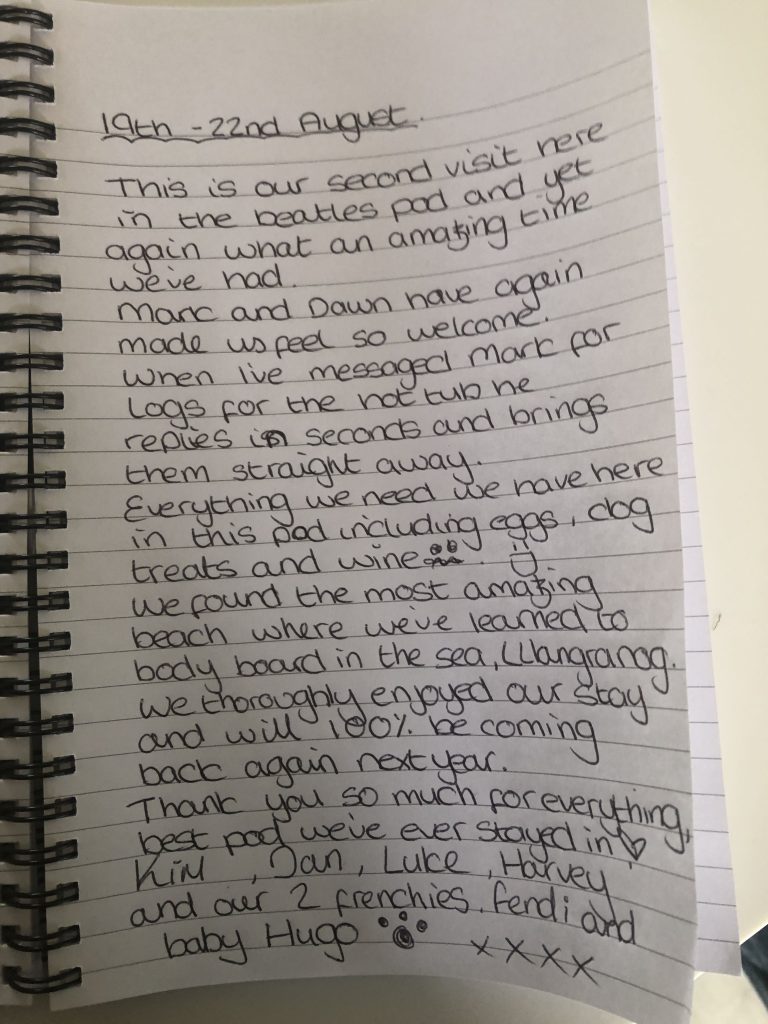 19th - 22nd August.
This is our second visit here
in the beatles pod and yet
again what an amazing time
we've had.
Mark and Dawn have again
made us feel so welcome.
When I've messaged Mark for
Logs for the hot tub he
replies in seconds and brings
them straight away.
Everything we need we have here
in this pod including eggs, dog
treats and wine.
We found the most amazing
beach where we've learned to
body board in the sea, Llangranog.
We thoroughly enjoyed our stay
and will 100% be coming
back again next year.
Thank you so much for everything,
best pod we've ever stayed in ♡
Kim, Dan, Luke, Harvey
and our 2 frenchies. Fendi and
baby Hugo xxxx